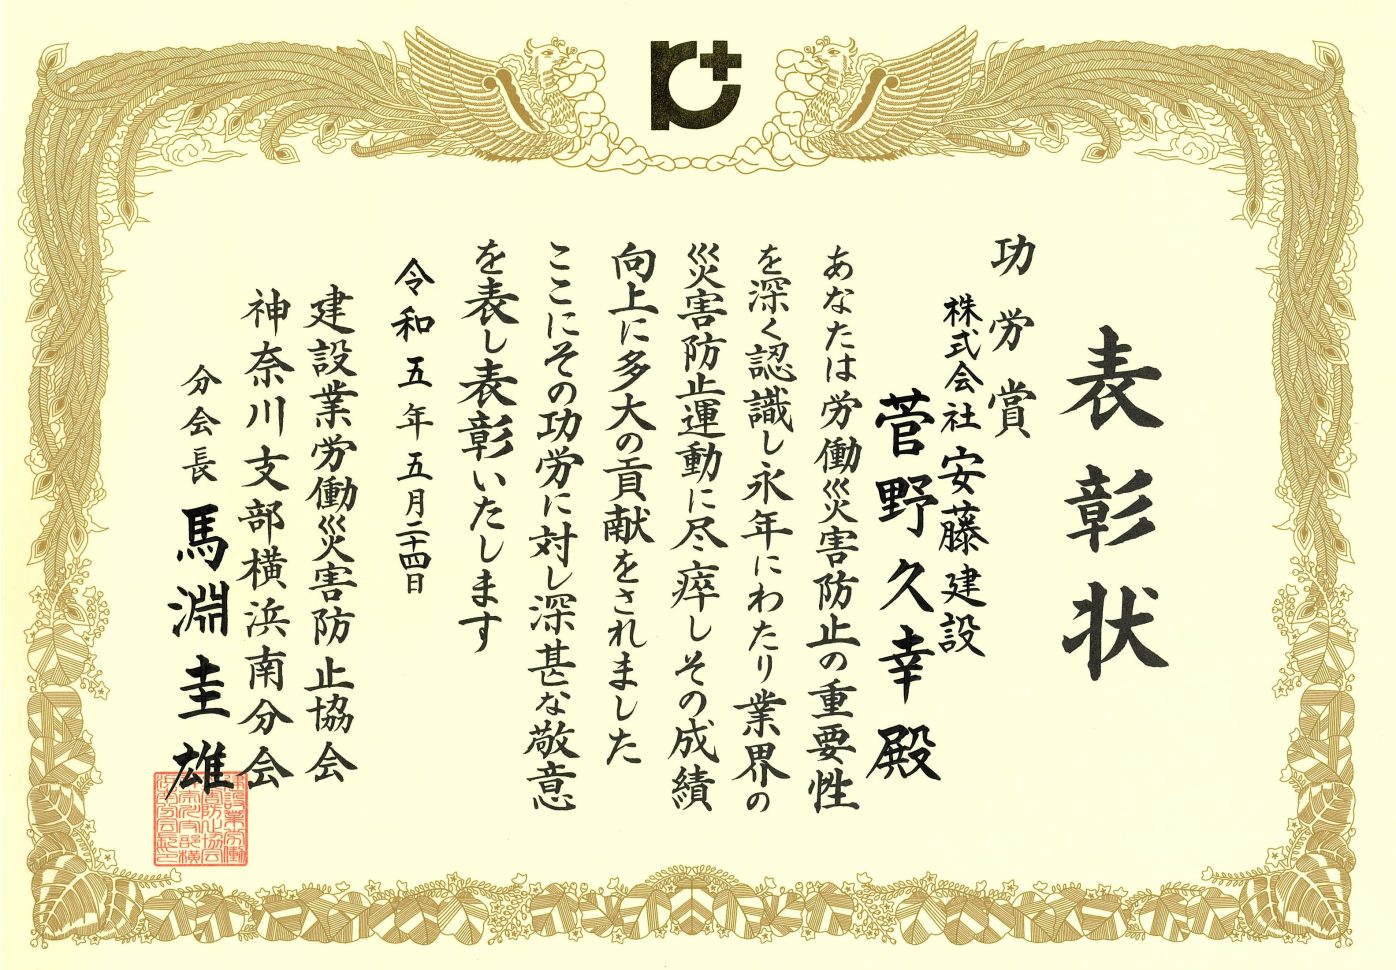 表彰状
功労賞
株式会社安藤建設
菅野久幸殿
あなたは労働災害防止の重要性
を深く認識し永年にわたり業界の
災害防止運動に尽瘁しその成績
向上に多大の貢献をされました
ここにその功労に対し深甚な敬意
を表し表彰いたします
令和五年五月二十四日
建設業労働災害防止協会
神奈川支部横浜南分会
分会長 馬淵圭雄